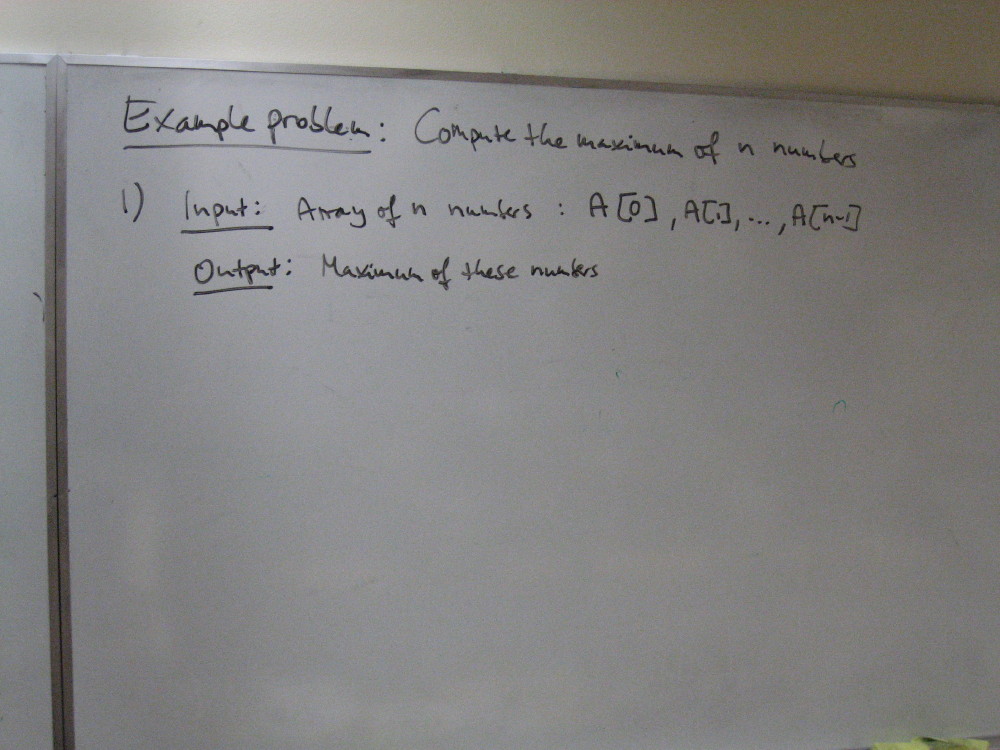 Example problem: Compute the maximum of n numbers
1) Input: Array of n numbers : A[0], A[1], ..., A[n-1]
Output: Maximum of these numbers